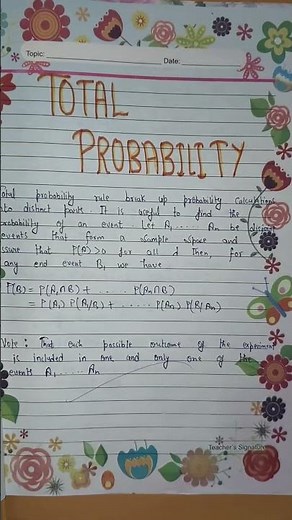 Topic:
Date:
TOTAL
PROBABILITY
otal probability rule break up probability calculations
nto distinct parts. It is useful to find the
probability of an event. Let A1, ..... An be disjoint
events that form a sample space and
ssure that P(A)>0 for all i. Then, for
any end event B, we have
P(B) = P(A1∩B) + ...... P(An∩B)
= P(A1) P(B/A1) + ...... P(An) P(B/An)
Note: that each possible outcome of the experiment
is included in one and only one of the
events A1, ..... An
Teacher's Signature